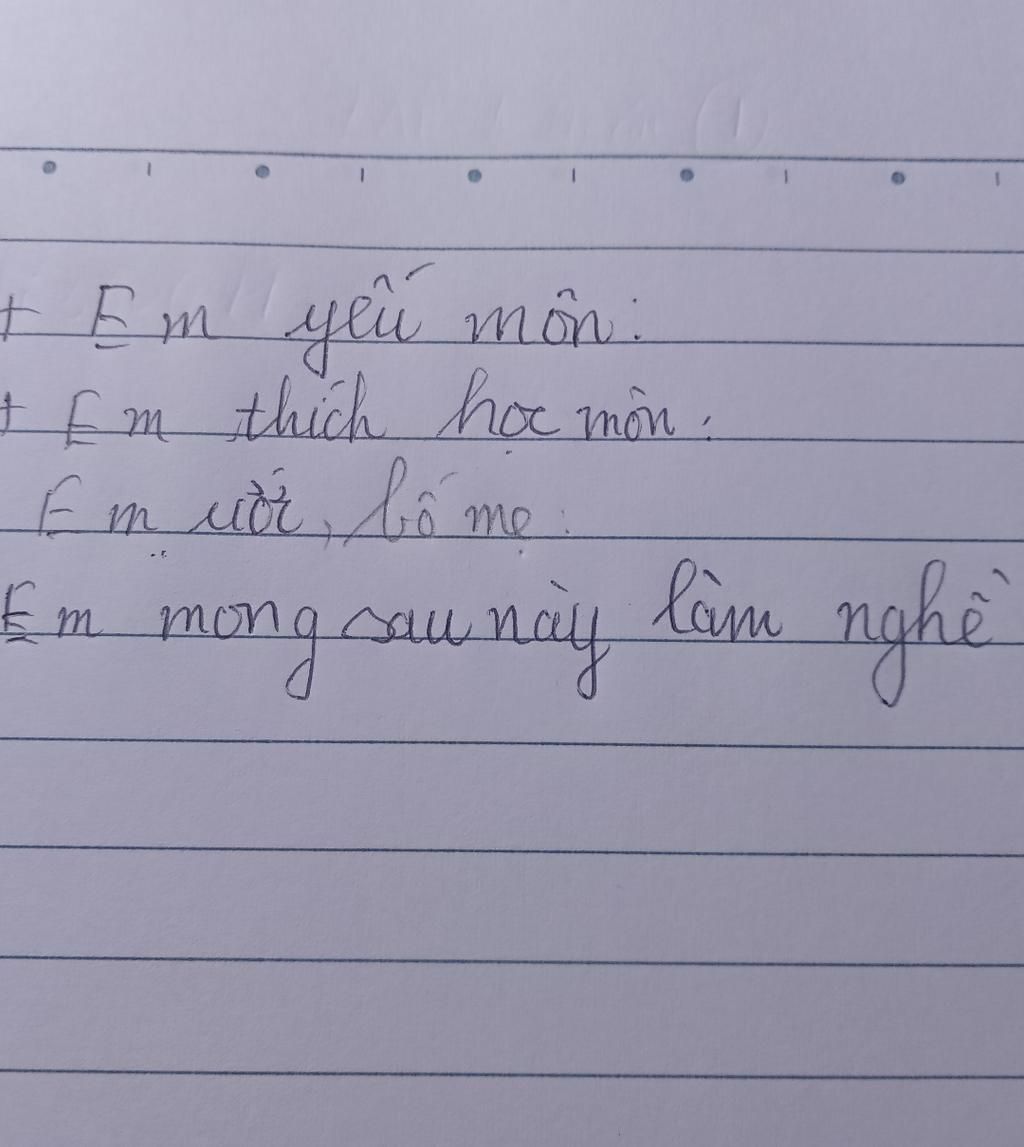 + Em yếu môn:
+ Em thích học môn:
Em ước, bố mẹ:
Em mong sau này làm nghề